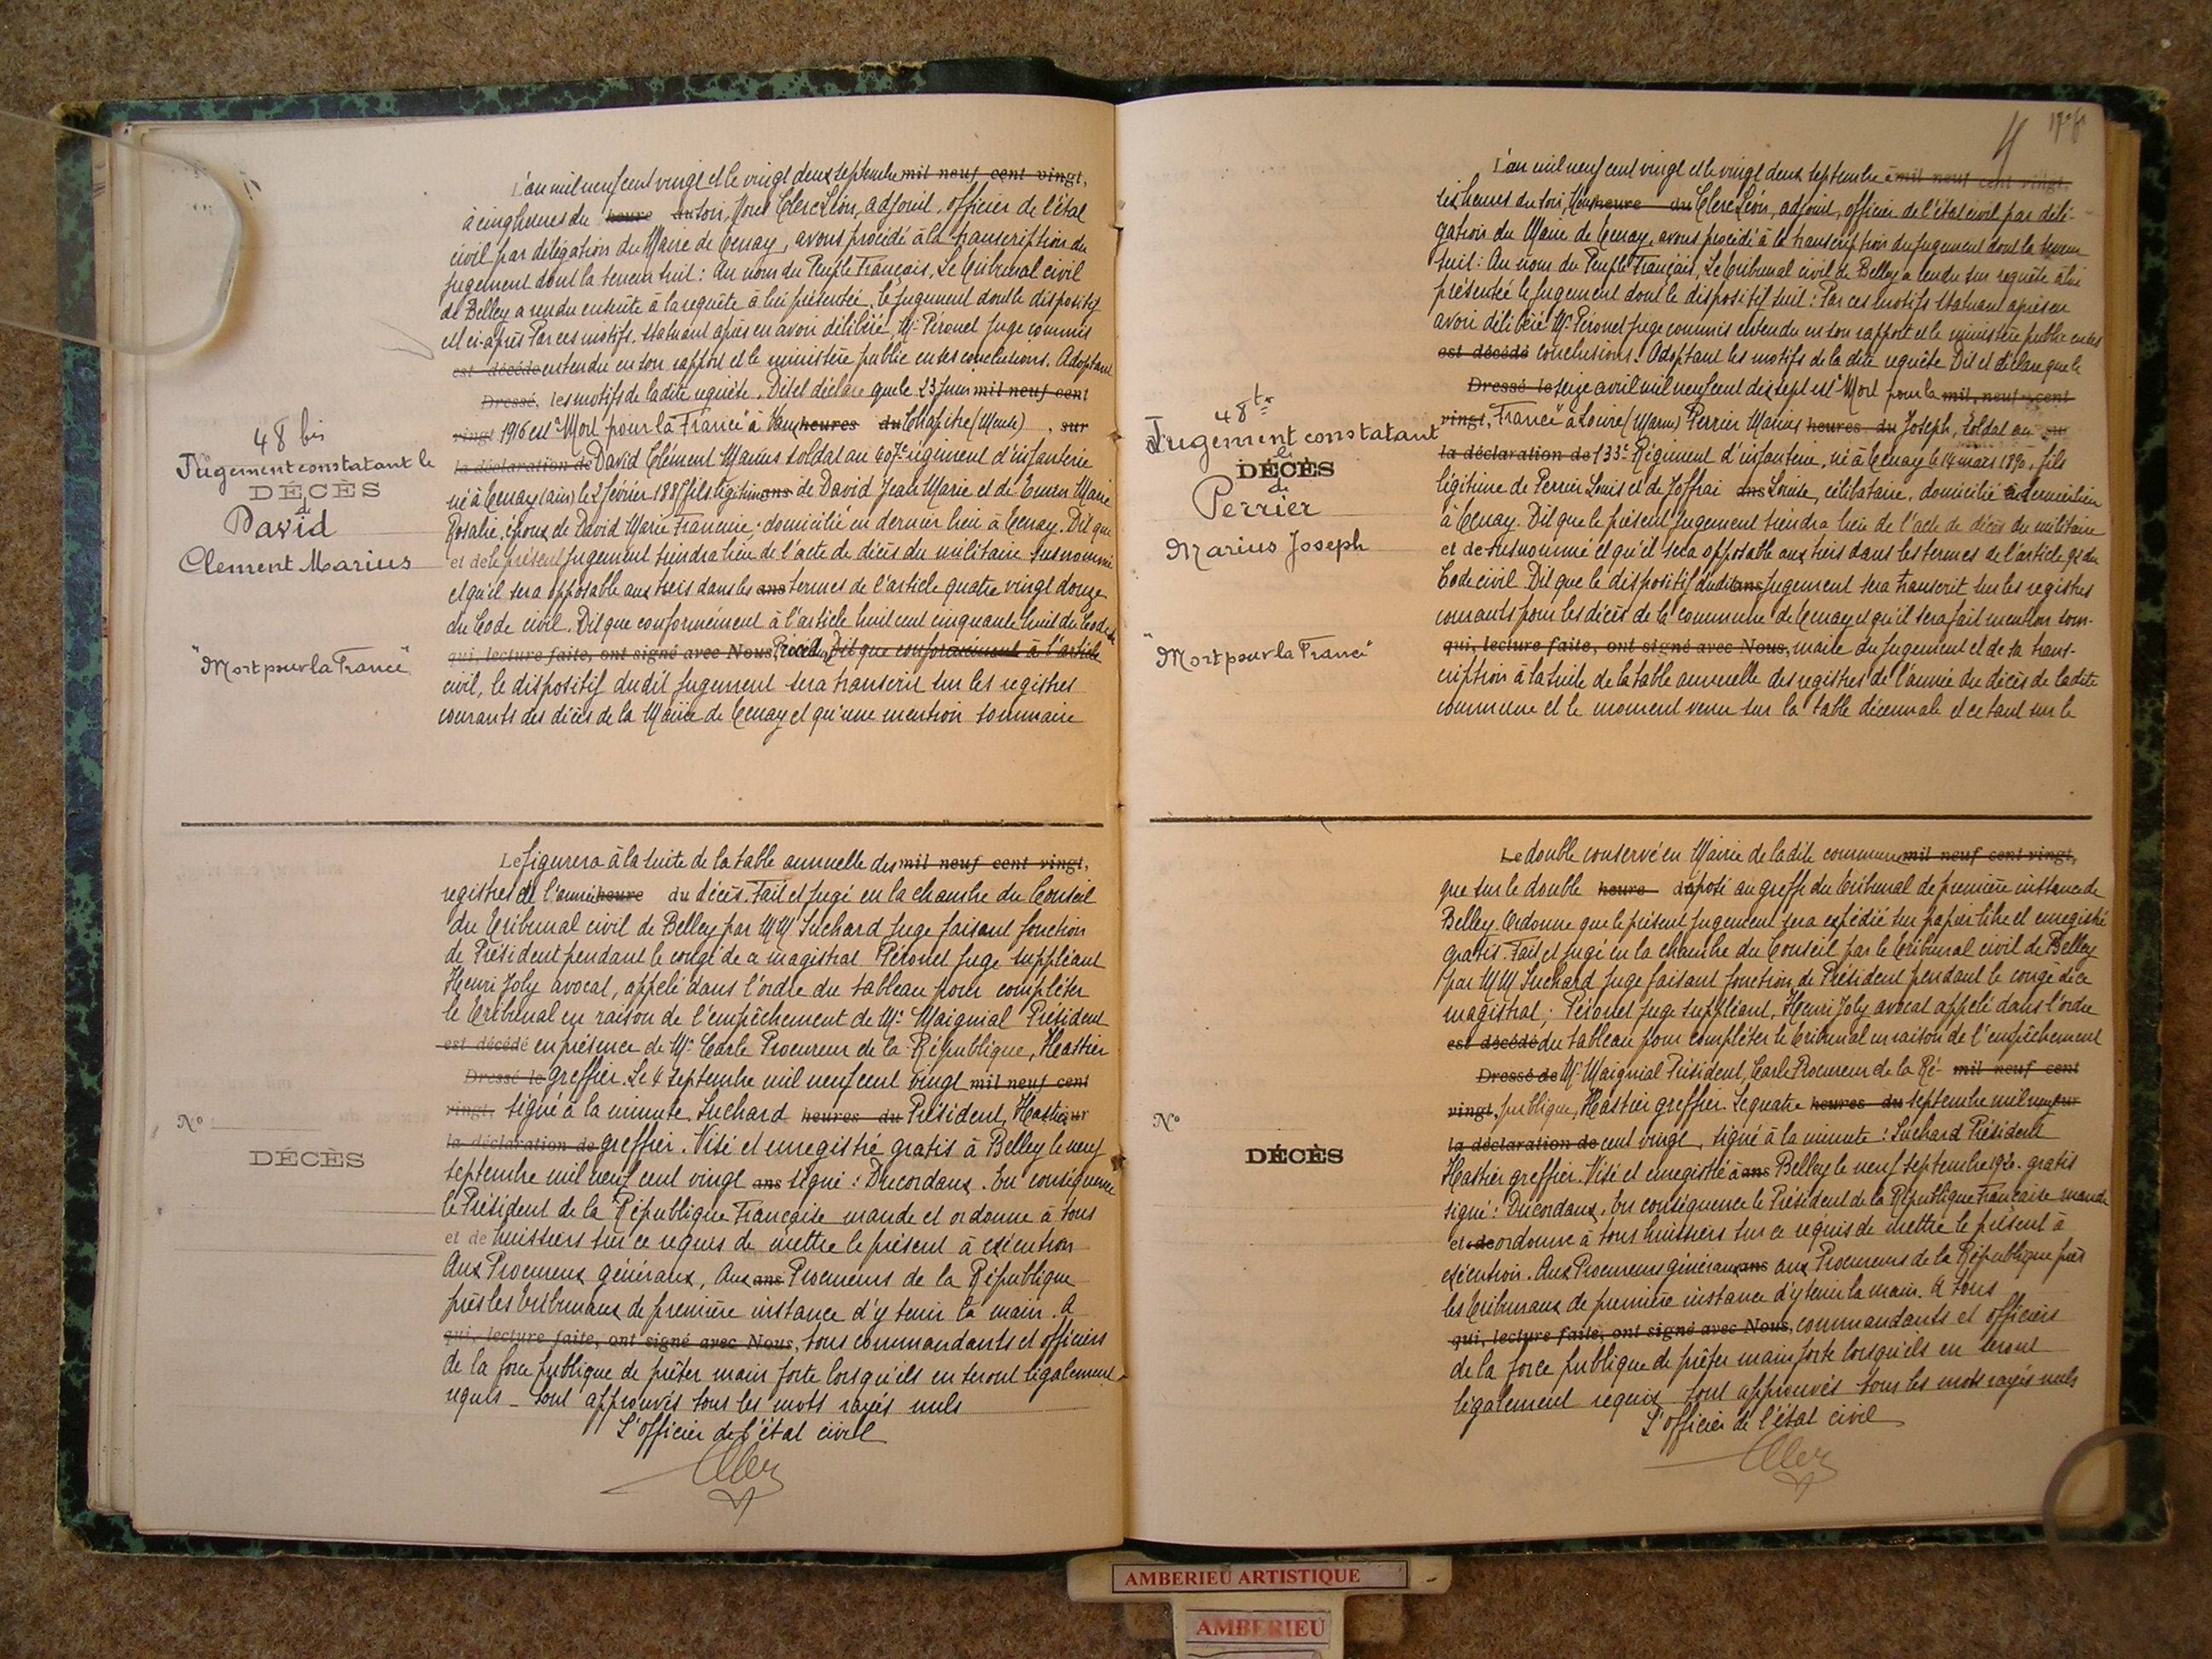 48 bis
Jugement constatant le
DÉCÈS
d
David
Clement Marius
"Mort pour la France"
L'an mil neuf cent vingt et le vingt deux septembre mil neuf cent vingt,
à cinq heures du heure du soir, Nous Clerc Léon, adjoint, officier de l'état
civil par délégation du Maire de Tenay, avons procédé à la transcription du
jugement dont la teneur suit : Au nom du Peuple Français, Le Tribunal civil
de Belley a rendu ensuite à la requête à lui présentée, le jugement dont le dispositif
est ci-après Par ces motifs. Statuant après en avoir délibéré, Mr Péronet juge commis
est décédé entendu en son rapport et le ministère public en ses conclusions. Adoptant
Dressé, les motifs de la dite requête. Dit et déclare que le 23 Juin mil neuf cent
vingt 1916 est "Mort pour la France" à Vaux heures du Chapitre (Meuse), sur
la déclaration de David Clément Marius soldat au 407e régiment d'infanterie
né à Tenay (ain) le 2 février 1885 fils légitime ans de David Jean Marie et de Marie
Rosalie, époux de David Marie Francine ; domicilié en dernier lieu à Tenay. Dit que
et de le présent jugement tiendra lieu de l'acte de décès du militaire susnommé
et qu'il sera opposable aux tiers dans les ans termes de l'article quatre vingt douze
du Code civil. Dit que conformément à l'article huit cent cinquante huit du Code de
qui, lecture faite, ont signé avec Nous, Dit que conformément à l'article
civil, le dispositif dudit jugement sera transcrit sur les registres
courants des décès de la Mairie de Tenay et qu'une mention sommaire
N°
DÉCÈS
Le figurera à la suite de la table annuelle des mil neuf cent vingt,
registres de l'année heure du décès. Fait et jugé en la chambre du Conseil
du Tribunal civil de Belley par MM Suchard juge faisant fonction
de Président pendant le congé de ce magistrat Péronet juge suppléant
Henri Joly avocat, appelé dans l'ordre du tableau pour compléter
le Tribunal en raison de l'empêchement de Mr Maignial Président
est décédé en présence de Mr Carle Procureur de la République, Hastier
Dressé le greffier. Le 4 septembre mil neuf cent vingt mil neuf cent
vingt, signé à la minute. Suchard heures du Président, Hastier sur
la déclaration de greffier. Visé et enregistré gratis à Belley le neuf
septembre mil neuf cent vingt ans signé : Ducordaux. En conséquence
le Président de la République Française mande et ordonne à tous
et de huissiers sur ce requis de mettre le présent à exécution
Aux Procureurs généraux, Aux ans Procureurs de la République
près les Tribunaux de première instance d'y tenir la main. A
qui, lecture faite, ont signé avec Nous, tous commandants et officiers
de la force publique de prêter main forte lorsqu'ils en seront légalement
requis _ sont approuvés tous les mots rayés nuls
L'officier de l'état civil
48 ter
Jugement constatant
le
DÉCÈS
d
Perrier
Marius Joseph
"Mort pour la France"
L'an mil neuf cent vingt et le vingt deux septembre à mil neuf cent vingt,
six heures du soir, Nous heure du Clerc Léon, adjoint, officier de l'état civil par délé-
gation du Maire de Tenay, avons procédé à la transcription du jugement dont la teneur
suit : Au nom du Peuple Français, Le Tribunal civil de Belley a rendu sur requête à lui
présentée le jugement dont le dispositif suit : Par ces motifs statuant après en
avoir délibéré Mr Péronet juge commis entendu en son rapport et le ministère public en ses
est décédé conclusions. Adoptant les motifs de la dite requête Dit et déclare que le
Dressé le seize avril mil neuf cent dix sept est "Mort pour la mil neuf cent
vingt, France" à Loivre (Marne) Perrier Marius heures du Joseph, soldat au sur
la déclaration de 133e Régiment d'infanterie, né à Tenay le 14 mars 1890, fils
légitime de Perrier Louis et de Joffrai ans Louise, célibataire, domicilié en dernier lieu
à Tenay. Dit que le présent jugement tiendra lieu de l'acte de décès du militaire
et de susnommé et qu'il sera opposable aux tiers dans les termes de l'article 92 du
Code civil. Dit que le dispositif dudit ans jugement sera transcrit sur les registres
courants pour les décès de la commune de Tenay et qu'il sera fait mention som-
qui, lecture faite, ont signé avec Nous, maire du jugement et de sa trans-
cription à la suite de la table annuelle des registres de l'année du décès de ladite
commune et le moment venu sur la table décennale et ce tant sur le
N°
DÉCÈS
Le double conservé en Mairie de ladite commune mil neuf cent vingt,
que sur le double heure du déposé au greffe du Tribunal de première instance de
Belley. Ordonne que le présent jugement sera expédié sur papier libre et enregistré
gratis. Fait et jugé en la chambre du Conseil par le Tribunal civil de Belley
par MM Suchard juge faisant fonction de Président pendant le congé de ce
magistrat ; Péronet juge suppléant, Henri Joly avocat appelé dans l'ordre
est décédé du tableau pour compléter le Tribunal en raison de l'empêchement
Dressé de Mr Maignial Président, Carle Procureur de la Ré- mil neuf cent
vingt, publique, Hastier greffier. Le quatre heures du septembre mil neuf sur
la déclaration de cent vingt, signé à la minute : Suchard Président
Hastier greffier. Visé et enregistré à ans Belley le neuf septembre 1920. gratis
signé : Ducordaux. En conséquence le Président de la République Française mande
et de ordonne à tous huissiers sur ce requis de mettre le présent à
exécution. Aux Procureurs généraux ans aux Procureurs de la République près
les Tribunaux de première instance d'y tenir la main. A tous
qui, lecture faite, ont signé avec Nous, commandants et officiers
de la force publique de prêter main forte lorsqu'ils en seront
légalement requis sont approuvés tous les mots rayés nuls
L'officier de l'état civil
AMBERIEU ARTISTIQUE
AMBERIEU